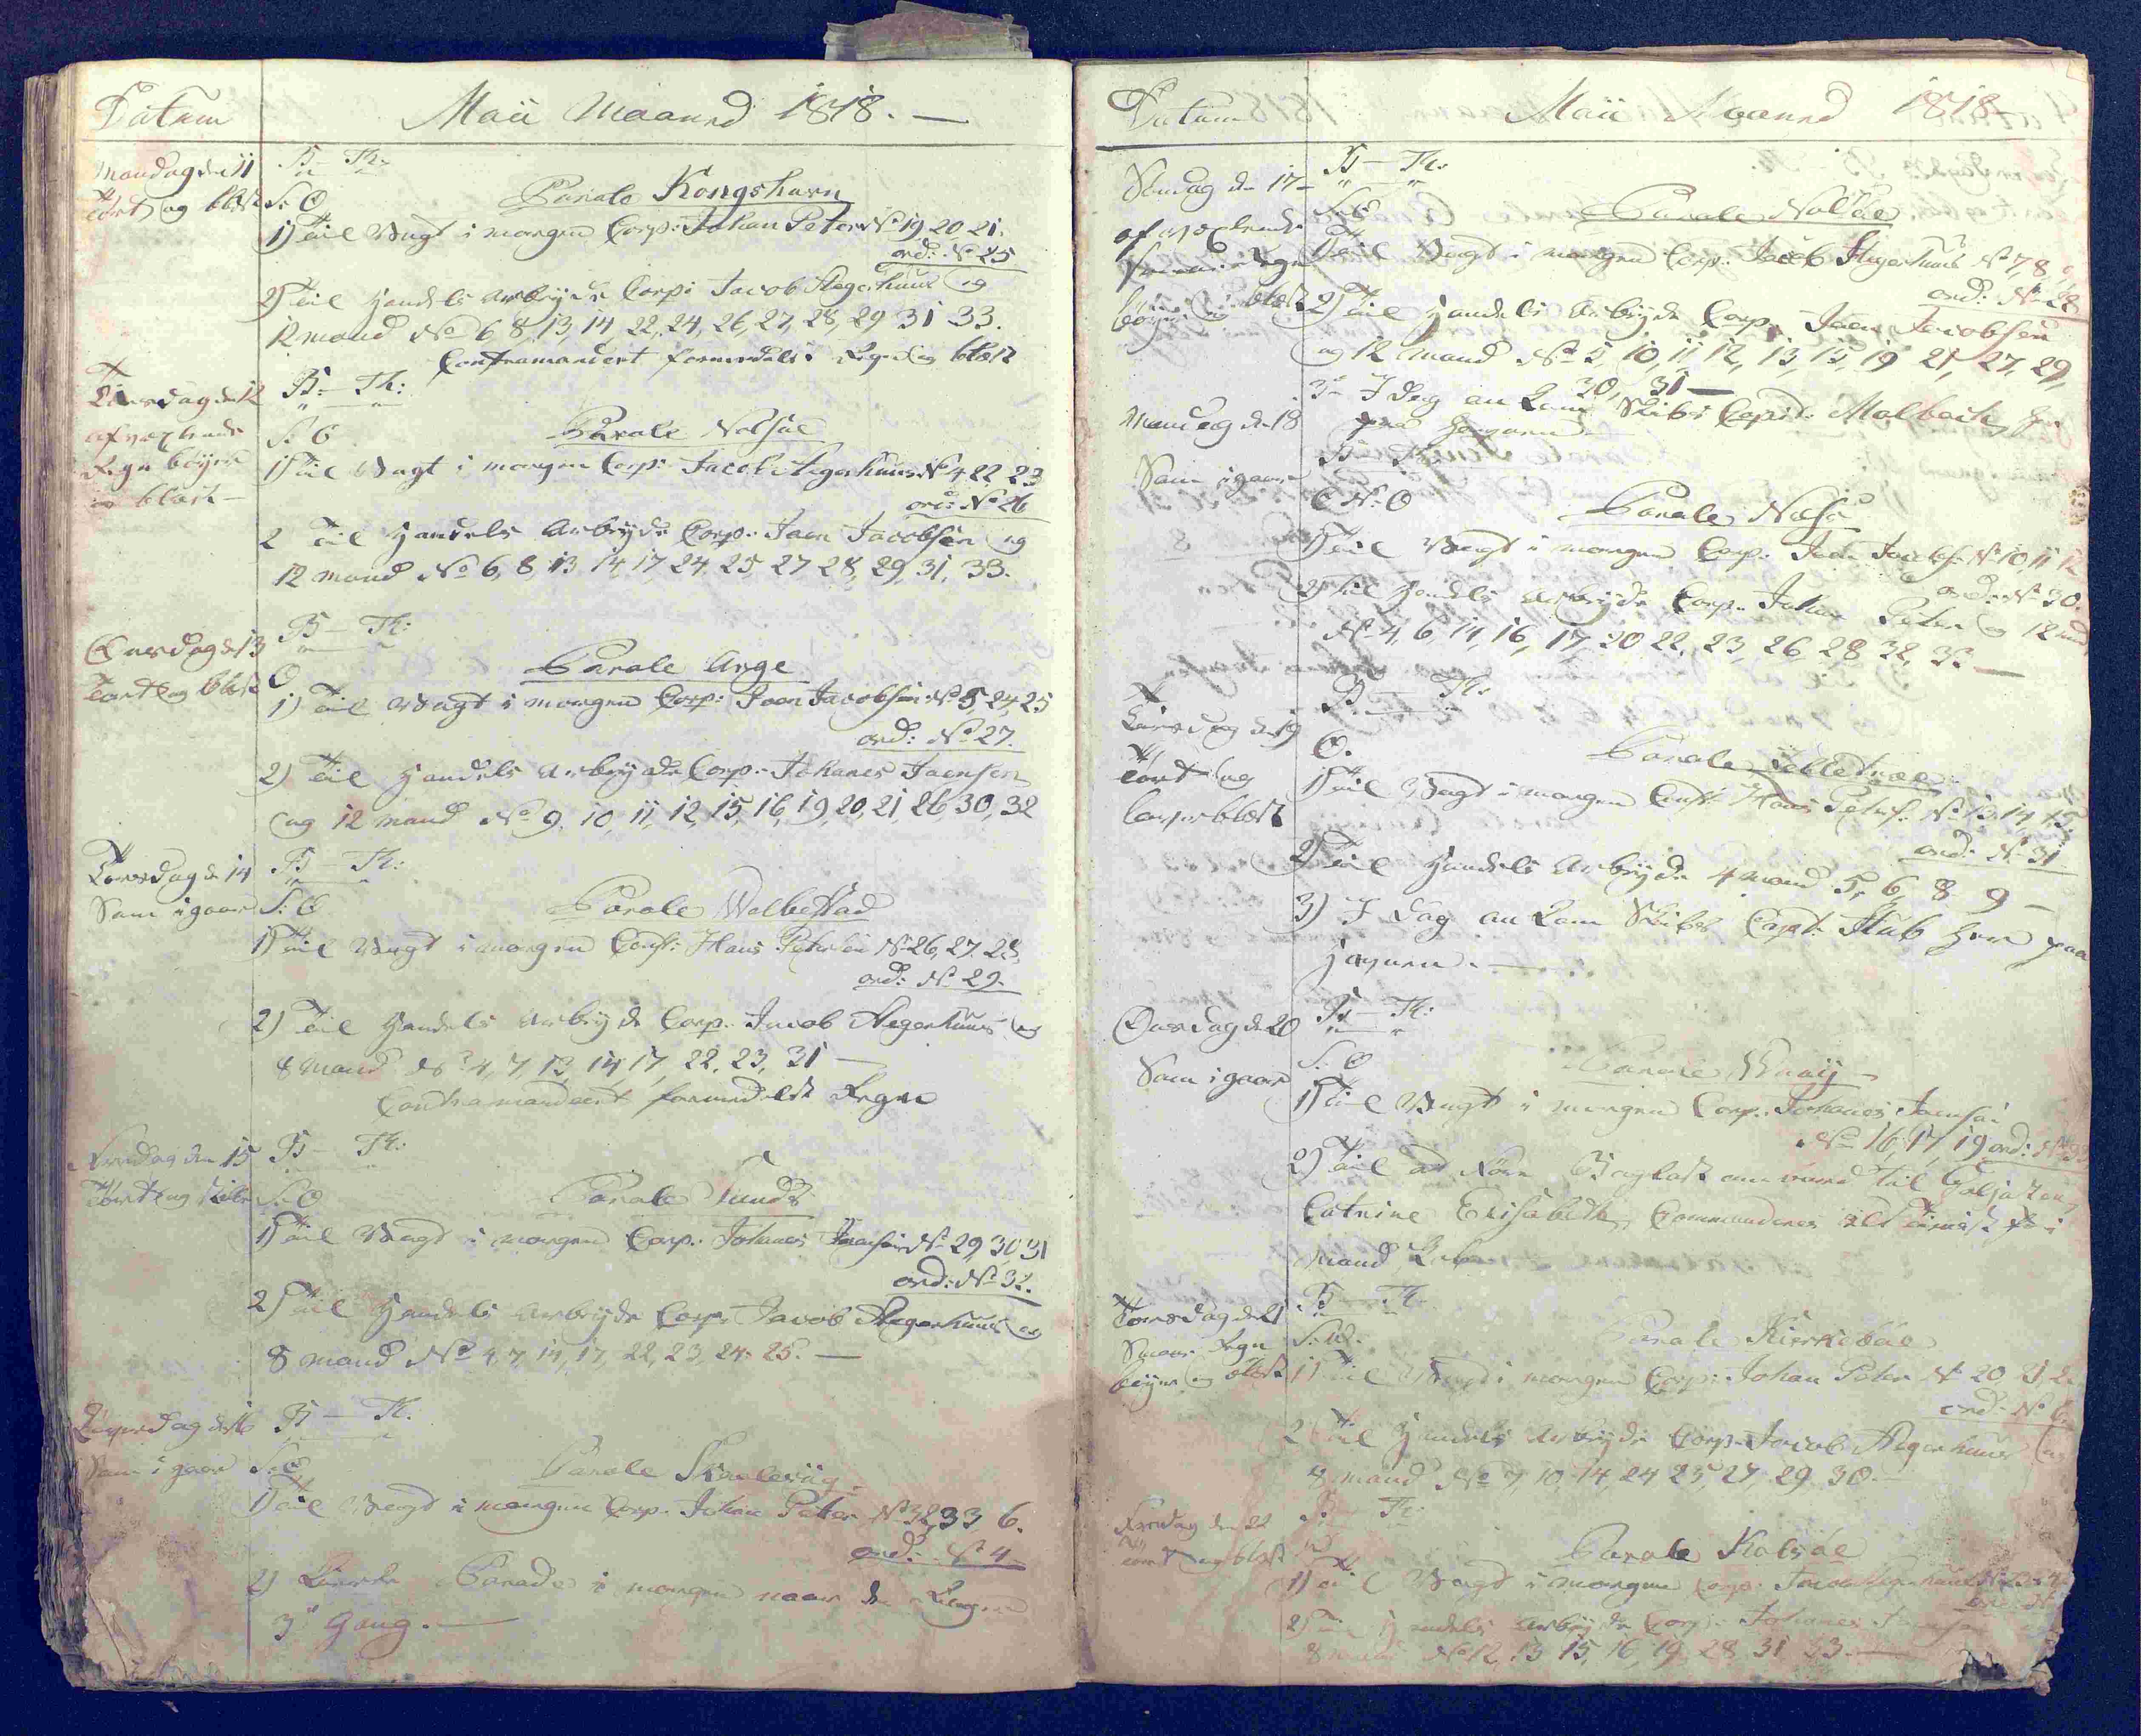 Datum
Maii Maaned 1818. —
Mandag d 11
B — Th:
Tört og blæst
S: O
Parole Kongshavn
1) Til Vagt i morgen Corp: Johan Peter No 19, 20, 21.
ord: No 25
2) Til Handels Arbeyde Corp: Jacob Aegerhuus og
12 mand No 6, 8, 13, 14, 22, 24, 26, 27, 28, 29 31 33.
Contramandert formedelst Regn og blæst
Tirsdag d 12
B — Th:
afvexlende
S: O
Parole Nolsöe
Regn böyer
1) Til Vagt i morgen Corp: Jacob Aegerhuus No 4 22, 23
og blæst —
ord: No 26
2 Til Handels Arbeyde Corp: Joen Jacobsen og
12 mand No 6, 8, 13, 14, 17, 24, 25, 27 28, 29, 31, 33.
Onsdag d 13
B — Th:
Tört og blæst
O
Parole Arge
1) Til Vagt i morgen Corp: Joen Jacobsen No 5, 24, 25
ord: No 27.
2) Til Handels Arbeyde Corp: Johanes Joensen
og 12 mand No 9, 10, 11, 12, 15, 16, 19, 20, 21, 26, 30, 32
Torsdag d 14
B — Th:
Som igaar
S: O
Parole Walbestad
1) Til Vagt i morgen Const: Hans Petersen No 26, 27, 28,
ord: No 29.
2) Til Handels Arbeyde Corp: Jacob Aegerhuus og
8 mand No 4, 7, 13, 14, 17, 22, 23, 31 —
Contramandert formedelst Regn
Fredag den 15
B — Th:
Tört og stille
S: O
Parole Sund
1) Til Vagt i morgen Corp: Johanes Joensen No 29, 30, 31
ord: No 32.
2) Til Handels Arbeyde Corp: Jacob Aegerhuus og
8 mand No 4, 7, 14, 17, 22, 23, 24, 25. —
Löverdag d 16
B — Th:
Som i gaar
S: O
Parole
1) Til Vagt i morgen Corp: Johan Peter No 32, 33 6.
ord: No 4
2) Kirke Parade i morgen naar de Ringer
3de Gang. —
Datum
Maii Maaned 1818
Söndag d 17
B — Th:
S: O
Parole Nolsöe
afvexlende
1) Til Vagt i morgen Corp: Jacob Aegerhuus No 7, 8, 9,
ord: No 28
böyer og blæst
2) Til Handels Arbeyde Corp: Joen Jacobsen
og 12 mand No 5, 10, 11, 12, 13, 15, 19 21, 27, 29,
30, 31 —
3) I Dag an Kom Skibs Capt: Malbach her
Mandag d 18
paa Havnen
B — Th:
Som igaar
N: O
Parole Nolsö
1) Til Vagt i morgen Corp: Joen Jacobs: No 10 11 12
ord: No 30.
2) Til Handels Arbeyde Corp: Johan Peter og 12 mand
No 4, 6, 14, 16, 17, 20 22, 23, 26, 28 32, 33 —
B — Th:
Tirsdag d 19
O.
Parole
Tört og
1) Til Vagt i morgen Const: Hans Peters: No 13, 14, 15,
ord: No 31
2) Til Handels Arbeyde 4 mand 5, 6, 8 9 —
3) I Dag an Kom Skibs Capt: Stub her paa
Havnen. —
Onsdag d 20
B — Th:
S: O
Som igaar
Parole
1) Til Vagt i morgen Corp: Johanes Joensen
No 16, 17, 19 ord: No
2) Til at före Baglast om bord til Galjasen
Catrine Elisabeth, Commanderes
mand
Torsdag d 21
B — Th:
Parole Kirkeböe
Regn
böyer og blæst
1) Til Vagt i morgen Corp: Johan Peter No 20, 21, 22
ord: No
2 Til Handels Arbeyde Corp: Jacob Aegerhuus og
8 mand No 7, 10, 14, 24 25, 27, 29 30.
Fredag den 22
B — Th:
Tört og blæst
Parole Kolsöe
1) Til Vagt i morgen Corp: Jacob Aegerhuus
2) Til Handels Arbeyde Corp: Johanes
8 mand No 12, 13 15, 16, 19, 28 31 33. —